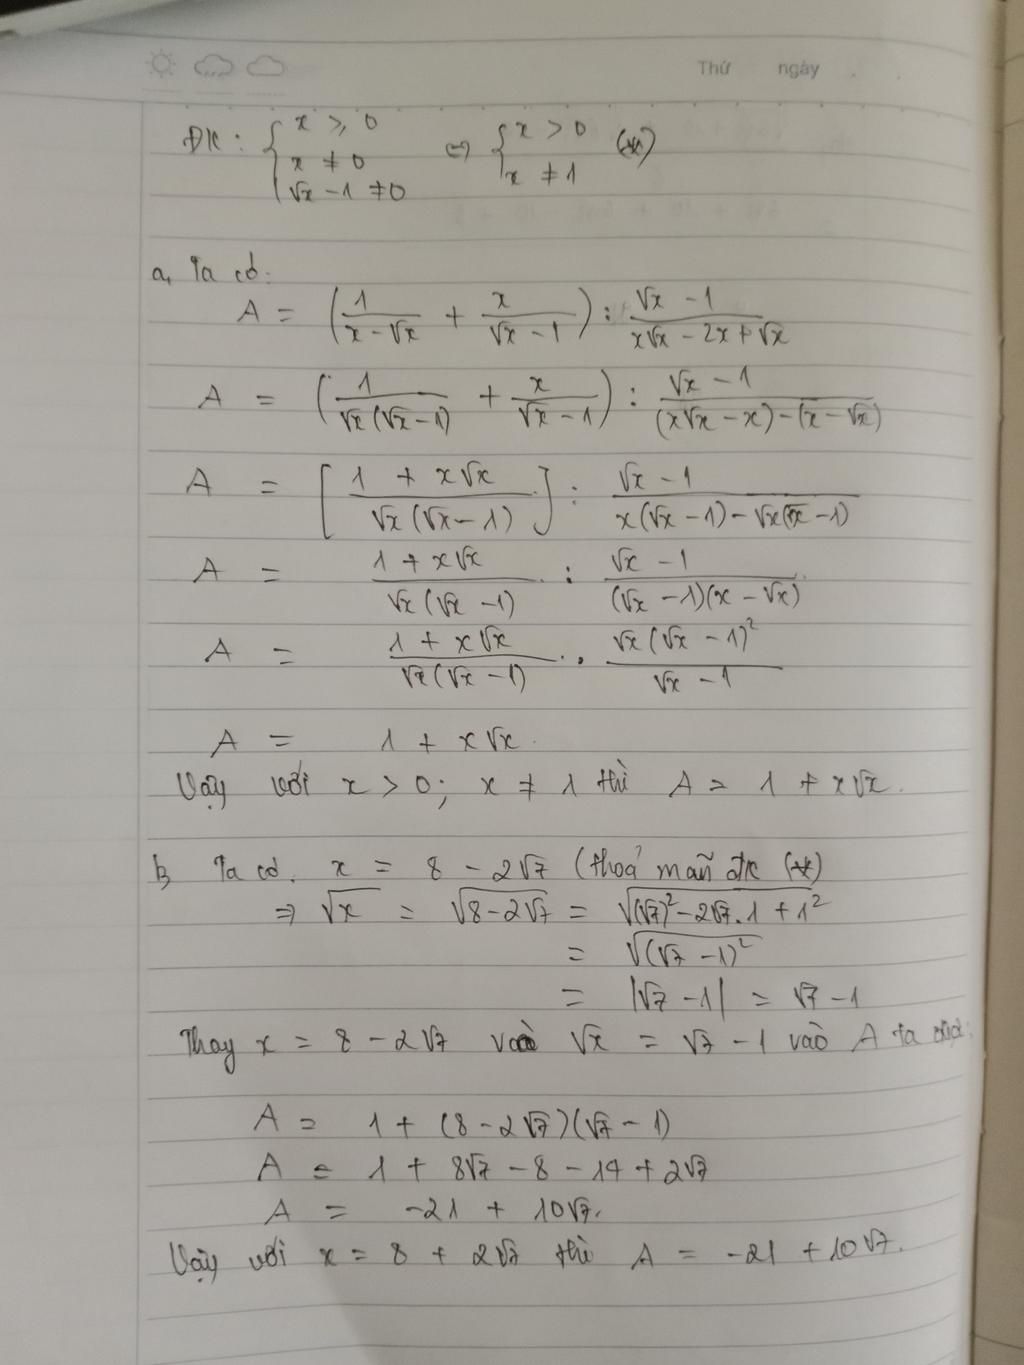 Thứ ngày
ĐK: { x ≥ 0 ; x ≠ 0 ; √x - 1 ≠ 0 ⇔ { x > 0 ; x ≠ 1 (*)
a, Ta có:
A = (1/(x - √x) + x/(√x - 1)) : (√x - 1)/(x√x - 2x + √x)
A = (1/(√x(√x - 1)) + x/(√x - 1)) : (√x - 1)/((x√x - x) - (x - √x))
A = [(1 + x√x)/(√x(√x - 1))] : (√x - 1)/(x(√x - 1) - √x(√x - 1))
A = (1 + x√x)/(√x(√x - 1)) : (√x - 1)/((√x - 1)(x - √x))
A = (1 + x√x)/(√x(√x - 1)) . (√x(√x - 1)²)/(√x - 1)
A = 1 + x√x.
Vậy với x > 0; x ≠ 1 thì A = 1 + x√x.
b, Ta có. x = 8 - 2√7 (thoả mãn đk (*)
⇒ √x = √(8 - 2√7) = √((√7)² - 2√7.1 + 1²)
= √((√7 - 1)²)
= |√7 - 1| = √7 - 1
Thay x = 8 - 2√7 và √x = √7 - 1 vào A ta được:
A = 1 + (8 - 2√7)(√7 - 1)
A = 1 + 8√7 - 8 - 14 + 2√7
A = -21 + 10√7.
Vậy với x = 8 + 2√7 thì A = -21 + 10√7.